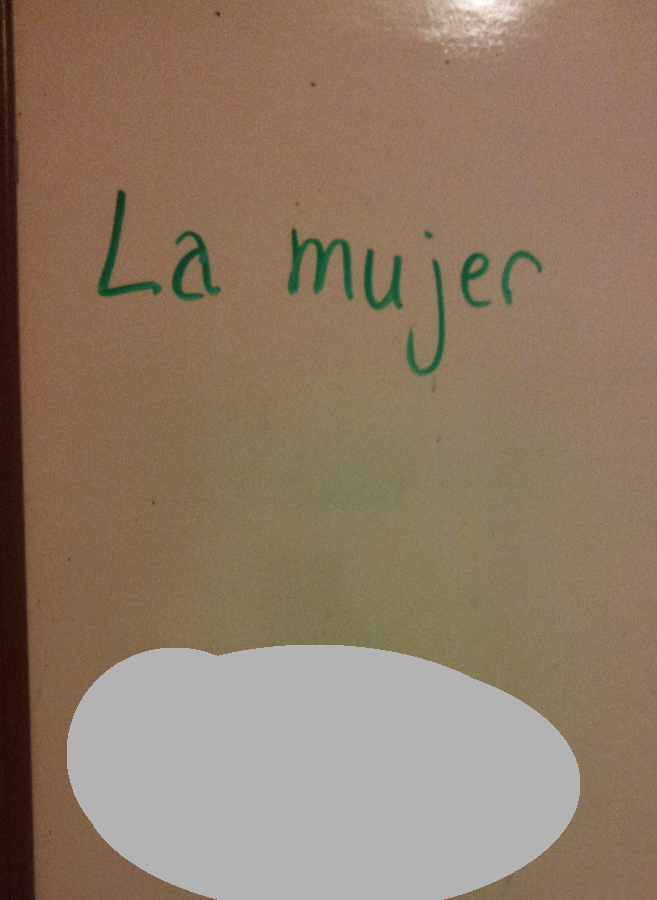 La mujer